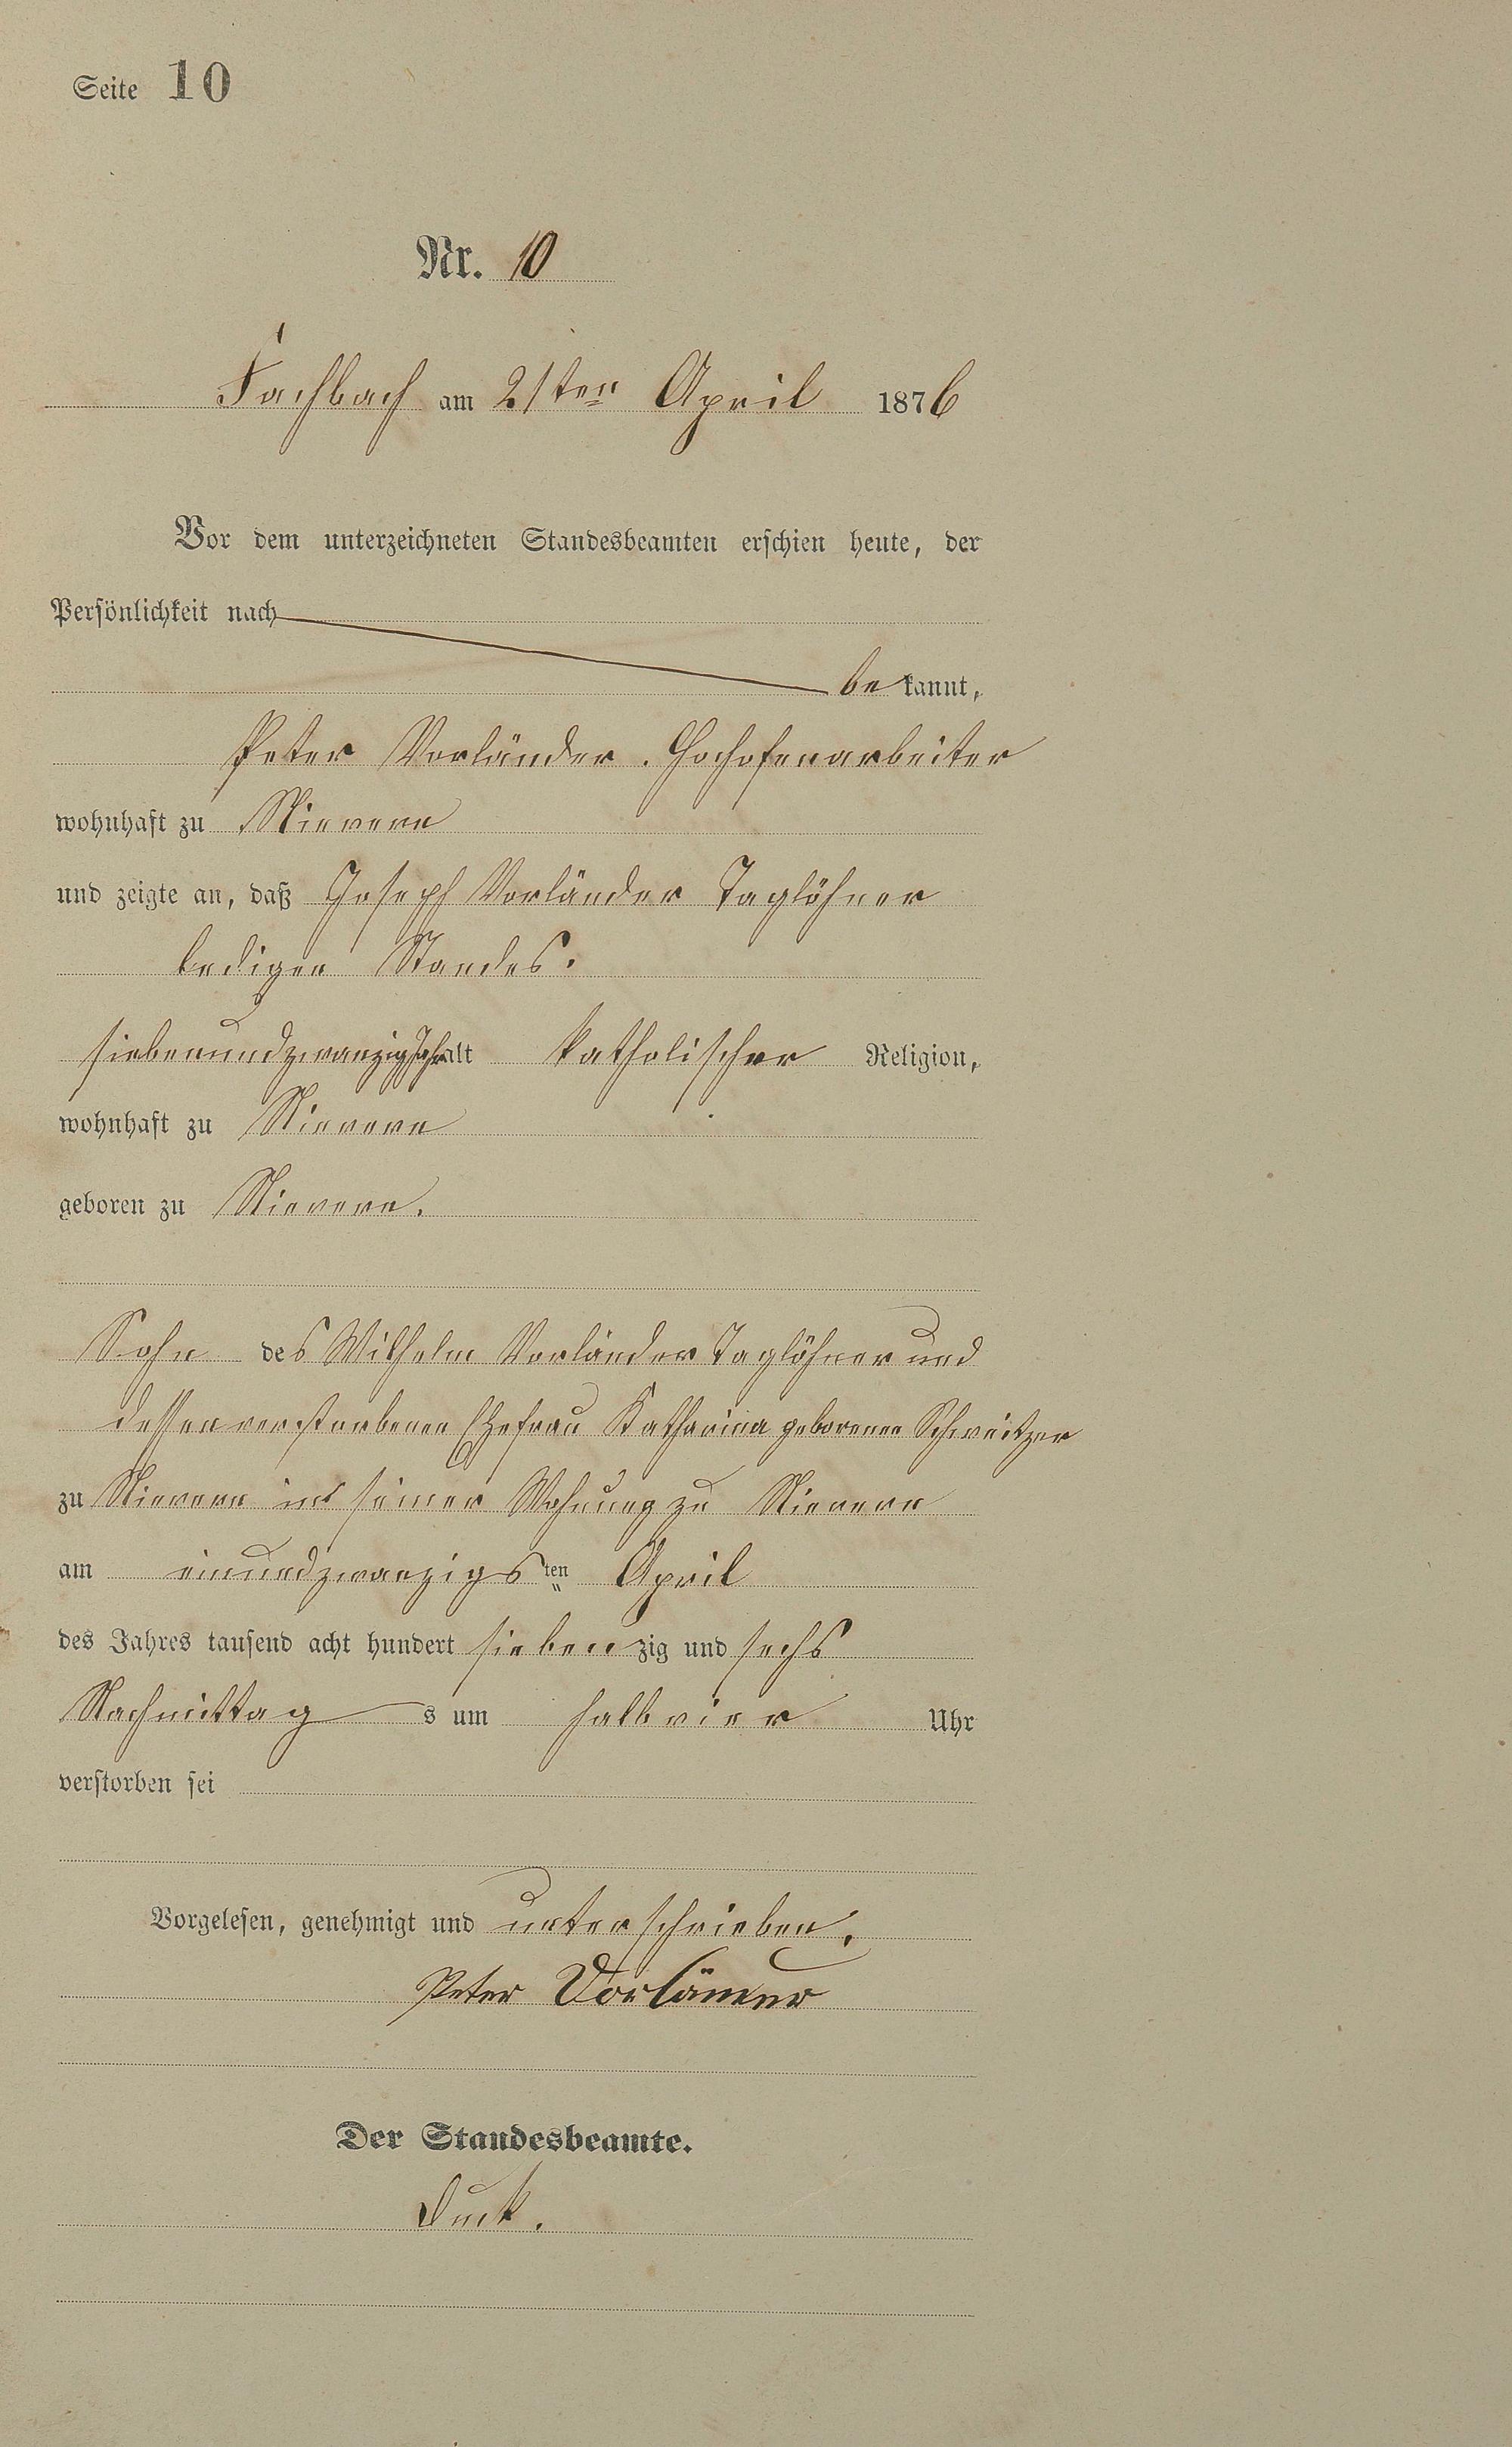 Seite 10
Nr. 10
Fachbach am 21ten April 1876
Vor dem unterzeichneten Standesbeamten erschien heute, der
Persönlichkeit nach
bekannt,
Peter Vorländer. Hochofenarbeiter
wohnhaft zu Nievern
und zeigte an, daß Joseph Vorländer Taglöhner
ledigen Standes.
siebenundzwanzig Jahr alt katholischer Religion,
wohnhaft zu Nievern
geboren zu Nievern.
Sohn des Wilhelm Vorländer Taglöhner und
dessen verstorbenen Ehefrau Katharina geborenen Schweitzer
zu Nievern in seiner Wohnung zu Nievern
am einundzwanzigsten April
des Jahres tausend acht hundert siebenzig und sechs
Nachmittags um halb vier Uhr
verstorben sei
Vorgelesen, genehmigt und unterschrieben.
Peter Vorländer
Der Standesbeamte.